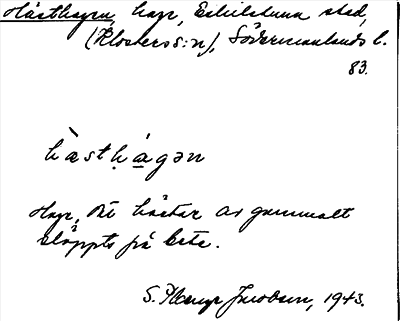 Hästhagen, hage, Eskilstuna stad,
(Klosters s:n), Södermanlands l.
83.
hästhagən
Hage, dit hästar av gammalt
släppts på bete.
S. Jacobsen, 1943.